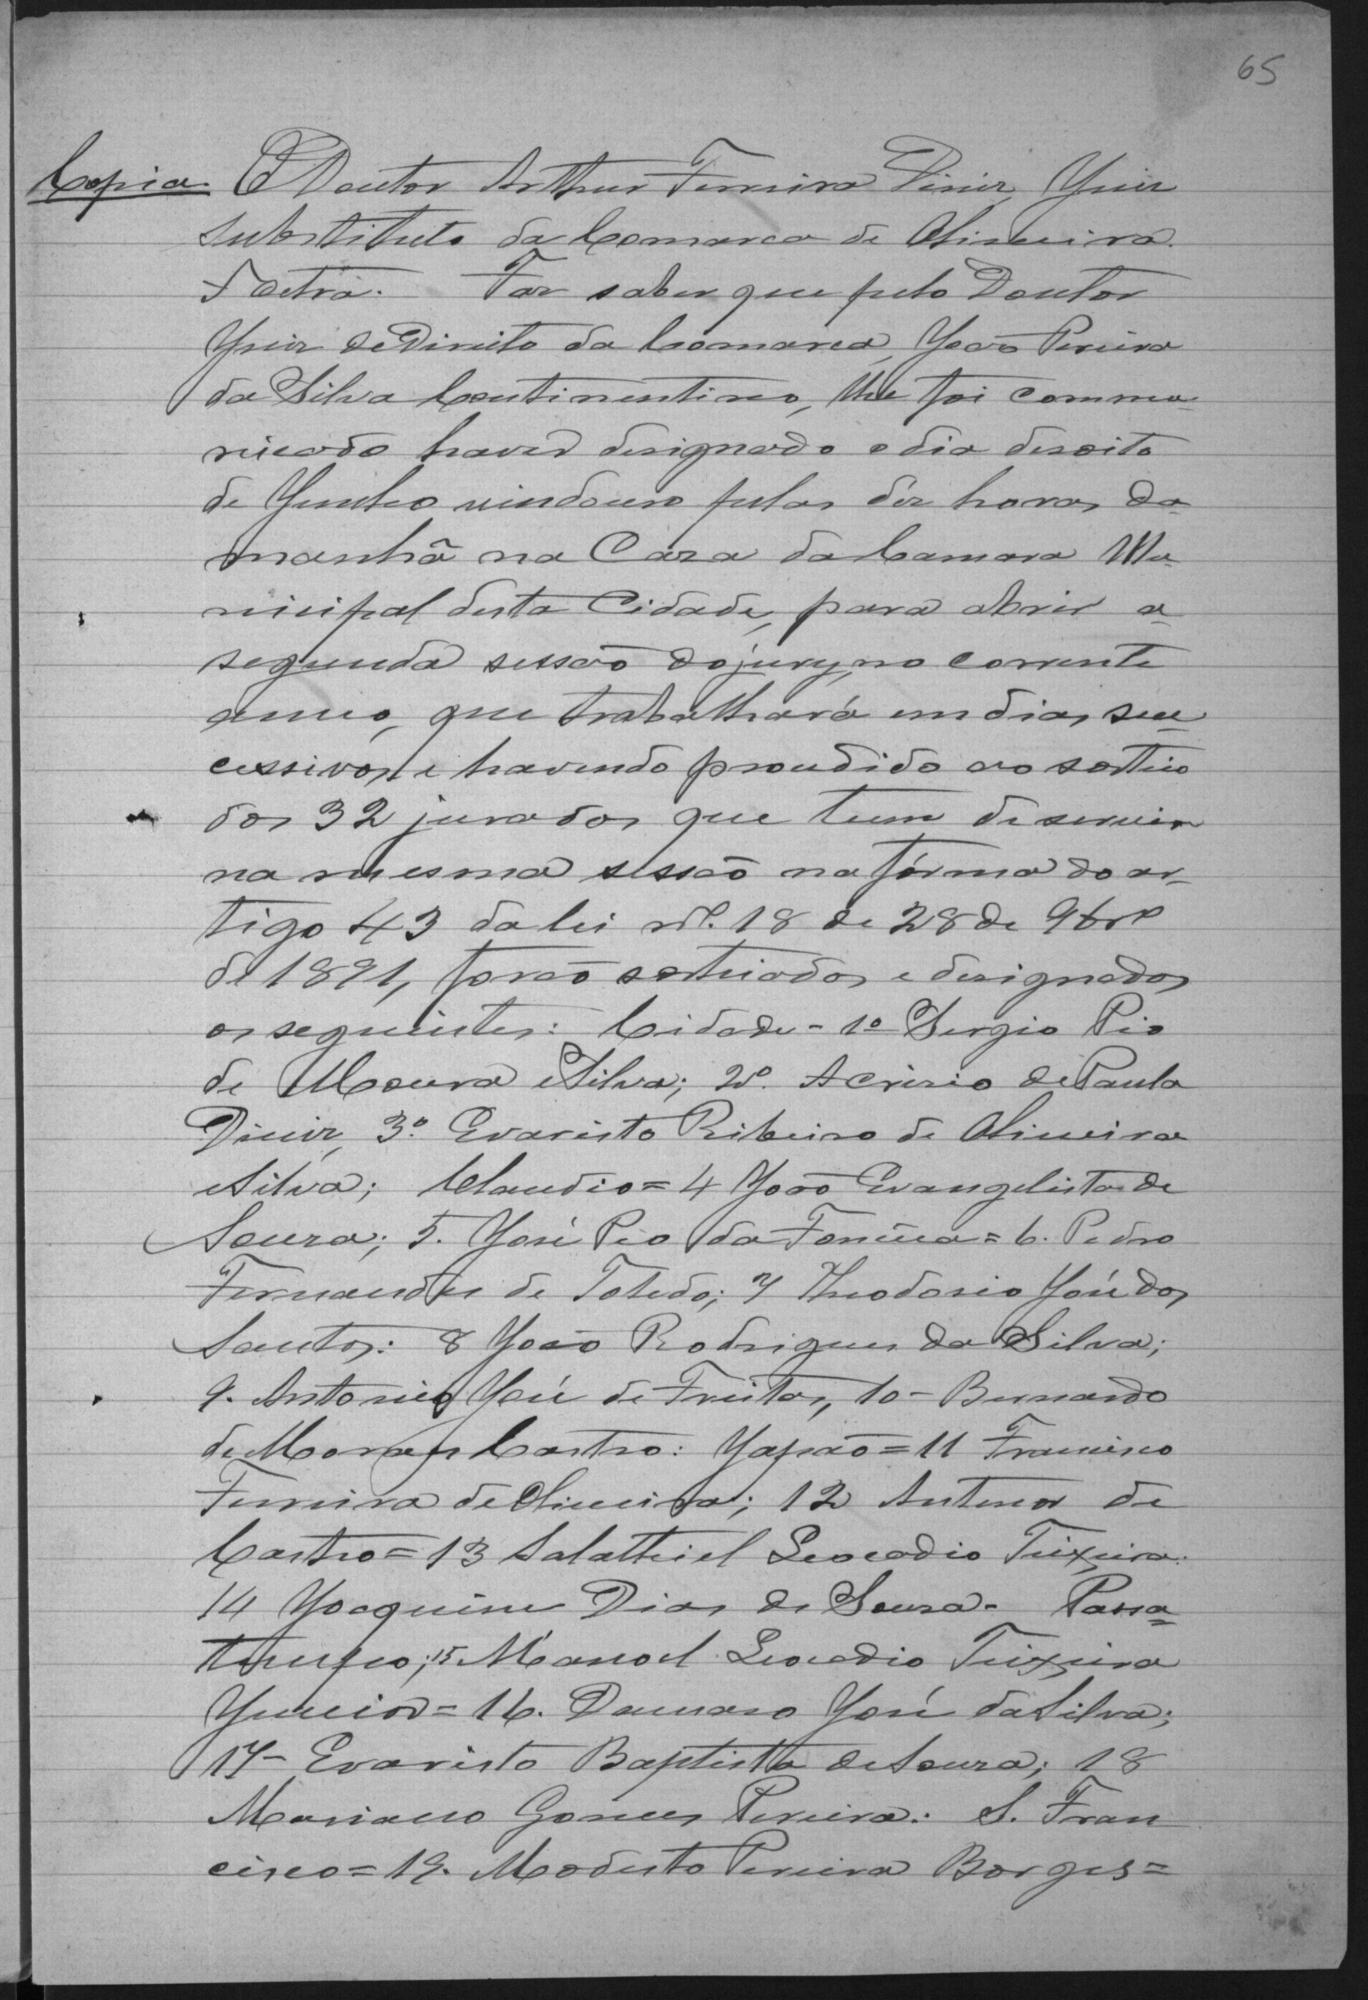 65
Copia O Doutor Arthur Ferreira Diniz, Juiz
substituto da Comarca de Oliveira
Faz saber que pelo Doutor
Juiz de Direito da Comarca, João Pereira
da Silva Continentino, lhe foi commu-
nicado haver designado o dia desoito
de Junho vindouro pelas dez horas da
manhã na Caza da Camara Mu-
nicipal desta Cidade, para abrir a
segunda sessão do jury, no corrente
anno, que trabalhará em dias suc-
cessivos, e havendo procedido ao sorteio
dos 32 jurados que teem de servir
na mesma sessão na fórma do ar-
tigo 43 da lei nº. 18 de 28 de 9brº
de 1891, forão sorteiados e designados
os seguintes: Cidade - 1º Sergio Pio
de Moura e Silva; 2º. Acrisio de Paula
Diniz, 3º. Evaristo Ribeiro de Oliveira
e Silva; Claudio = 4 João Evangelista de
Souza; 5. José Pio da Fonseca = 6. Pedro
Fernandes de Toledo; 7 Theodosio José dos
Santos: 8 João Rodrigues da Silva;
9. Antonio José de Freitas, 10 - Bernardo
de Moraes Castro: Japão = 11 Francisco
Ferreira de Oliveira; 12 Antenor de
Castro = 13 Salathiel Leocadio Teixeira.
14 Joaquim Dias de Souza - Passa
tempo; 15 Manoel Leocadio Teixeira
Junior = 16. Damaso José da Silva;
17 - Evaristo Baptista de Souza; 18
Mariano Gomes Pereira: S. Fran
cisco = 19. Modesto Pereira Borges =